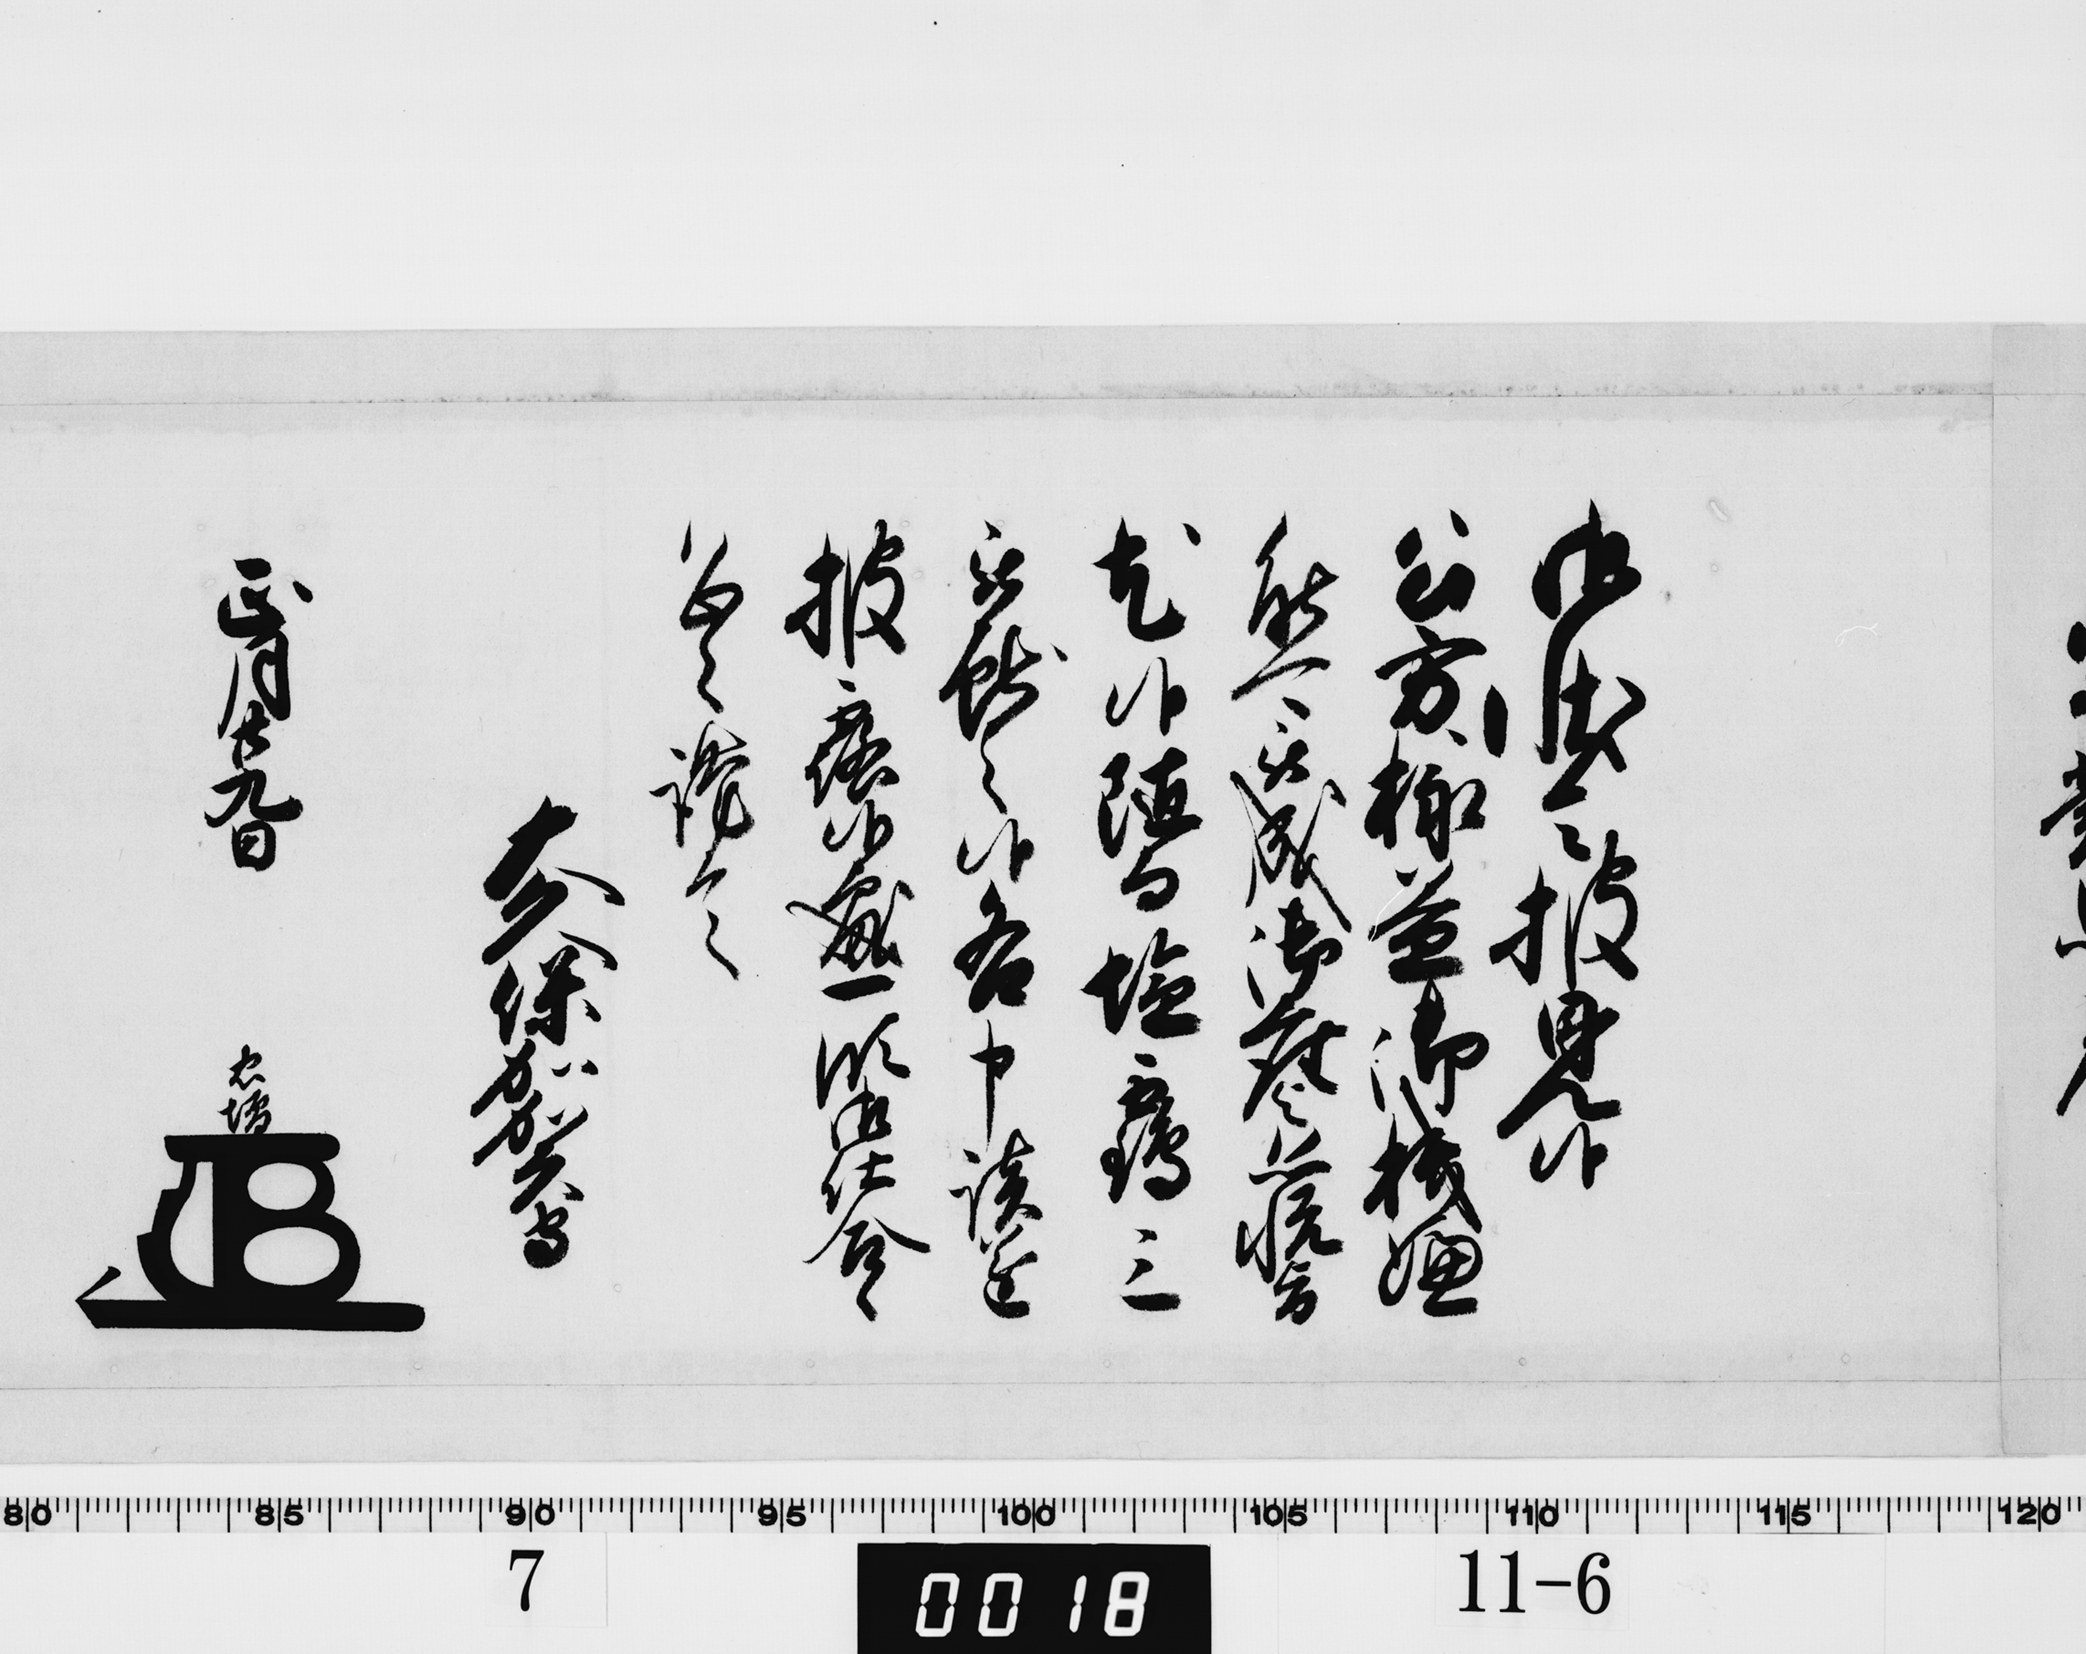 御状令披見候
公方様益御機嫌
能被成御座恐悦旨
尤候随而塩鶴三
被献之候各申談遂
披露候処一段御仕合
恐々謹言
大久保加賀守
正月廿九日
忠増
80 85 90 95 100 105 110 115 120
7
0018
11-6